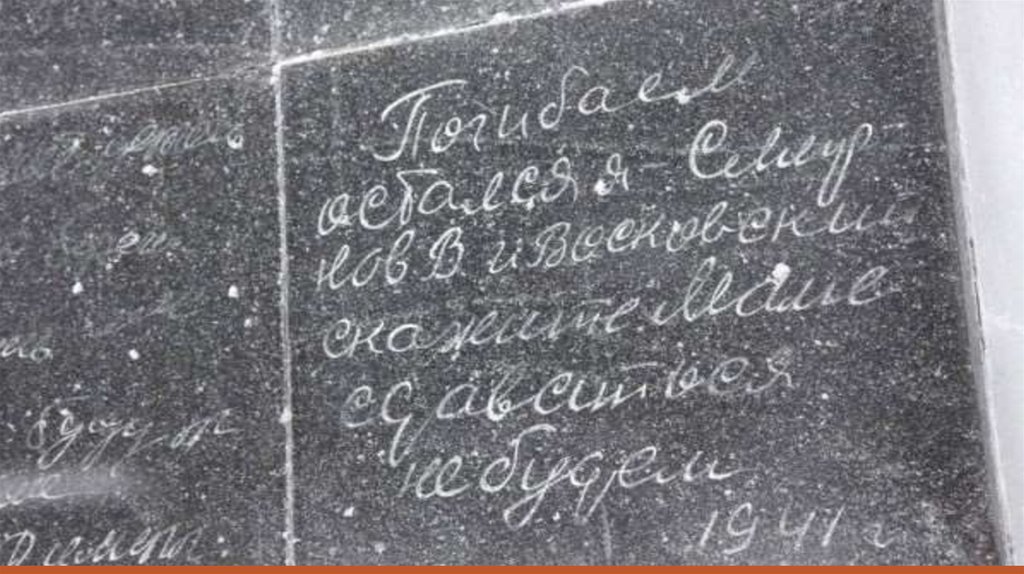 Погибаем
остался я Смир
нов В и Восковский
скажите Маме
сдаваться
не будем
1941 г
будут